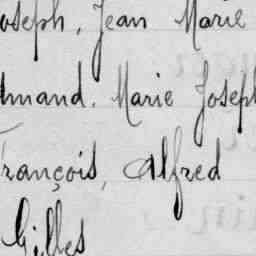 oseph, Jean Marie
dmand. Marie Joseph
François, Alfred
Gilles